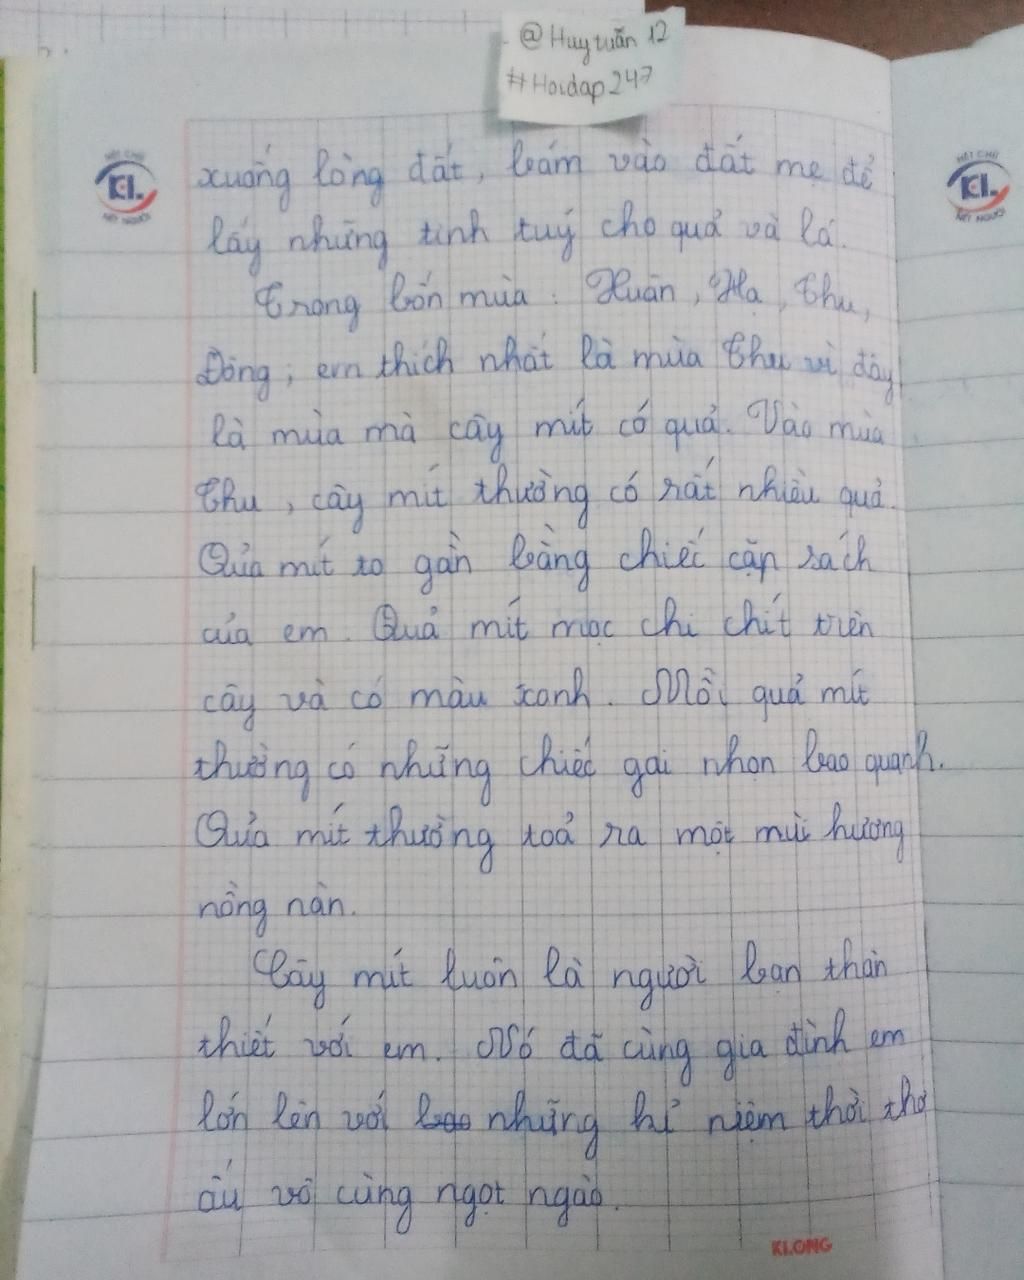 @Huytuấn 12
#Hoidap247
NÉT CHỮ
KL
NẾT NGƯỜI
NÉT CHỮ
KL
NẾT NGƯỜI
xuống lòng đất, bám vào đất mẹ để
lấy những tinh tuý cho quả và lá.
Trong bốn mùa: Xuân, Hạ, Thu,
Đông; em thích nhất là mùa Thu vì đây
là mùa mà cây mít có quả. Vào mùa
Thu, cây mít thường có rất nhiều quả.
Quả mít to gần bằng chiếc cặp sách
của em. Quả mít mọc chi chít trên
cây và có màu xanh. Mỗi quả mít
thường có những chiếc gai nhọn bao quanh.
Quả mít thường toả ra một mùi hương
nồng nàn.
Cây mít luôn là người bạn thân
thiết với em. Nó đã cùng gia đình em
lớn lên với những kỉ niệm thời thơ
ấu vô cùng ngọt ngào.
KLONG